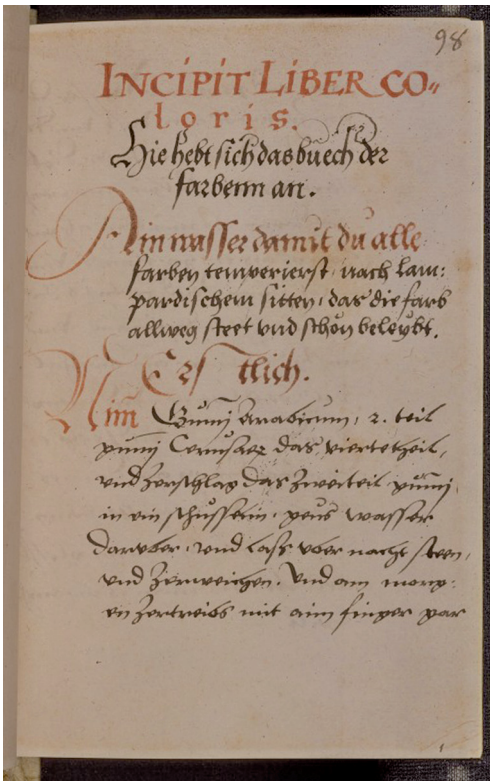 98
INCIPIT LIBER CO=
loris.
Hie hebt sich das buech der
farbenn an.
Ain wasser damit du alle
farben temperierst nach lam:
pardischem sitten, das die farb
allweg steet vnd schön beleybt.
Erstlich.
Nim Gummj Arabicum, 2. teil
gummj Cerusaer das viertetheil,
vnd zerschlag das zweiteil gummj,
in ein schüsselin, geus wasser
daruber, vnd lass vber nacht steen,
vnd zerweichen. Vnd am morg:
en zertreibs mit aim finger gar